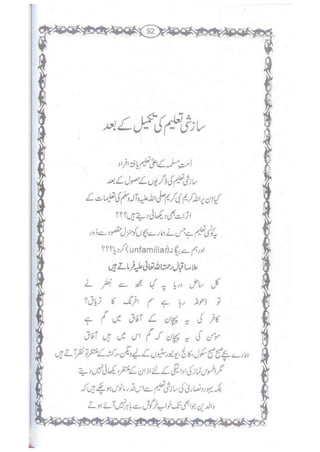 92
سازشی تعلیم کی تکمیل کے بعد
اُمت مسلمہ کے اعلیٰ تعلیم یافتہ افراد
سازشی تعلیم کی ڈگریوں کے حصول کے بعد
کیا ان پر اللہ کریم نبی کریم صلی اللہ علیہ وآلہ وسلم کی تعلیمات کے
اثرات بھی دکھائی دیتے ہیں؟؟؟
یہ کونسی تعلیم ہے جس نے ہمارے بچوں کو منزل مقصود سے دُور
اور ہم سے بیگانہ (unfamiliar) کر دیا؟؟؟
علامہ اقبال رحمتہ اللہ تعالیٰ علیہ فرماتے ہیں
کل ساحل دریا پہ کہا مجھ سے خضر نے
تو ڈھونڈ رہا ہے سم افرنگ کا تریاق؟
کافر کی یہ پہچان کے آفاق میں گم ہے
مومن کی یہ پہچان کہ گم اس میں ہیں آفاق
ہمارے بچے صبح صبح سکول، کالج، یونیورسٹیوں کے لیے ویگن، رکشہ کے منتظر تو نظر آتے ہیں
مگر افسوس نماز کی ادائیگی کے لئے اذان کے منتظر دکھائی نہیں دیتے
بلکہ یہود و نصاریٰ کی سازشی تعلیم سے اس قدر مانوس ہو چکے ہیں کہ
والدین جو ابھی تک خواب خرگوش سے باہر نہیں آئے ہوتے